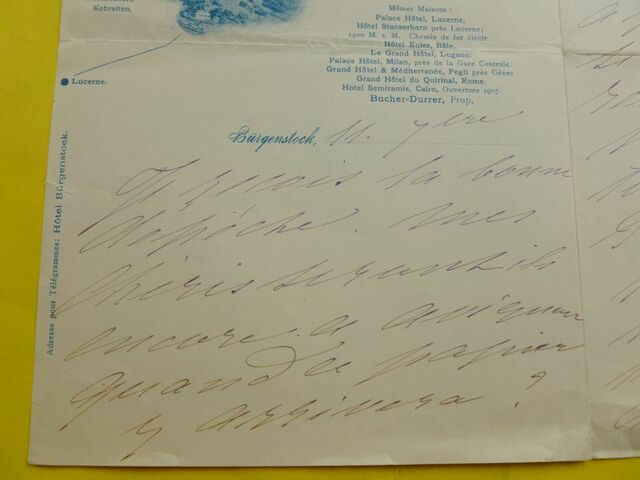 Kehrsiten.
Lucerne.
Mêmes Maisons :
Palace Hôtel, Lucerne,
Hôtel Stanserhorn près Lucerne;
1900 M. s. M. Chemin de fer électr.
Hôtel Euler, Bâle.
Le Grand Hôtel, Lugano.
Palace Hôtel, Milan, près de la Gare Centrale.
Grand Hôtel & Méditerranée, Pegli près Gênes
Grand Hôtel du Quirinal, Rome.
Hotel Semiramis, Cairo, Ouverture 1907.
Bucher-Durrer, Prop.
Bürgenstock, 11. 7bre
Adresse pour Télégrammes: Hôtel Bürgenstock.
Je reçois la bonne
dépêche. mes
chéris seront ils
encore a avignon
quand ce papier
y arrivera ?